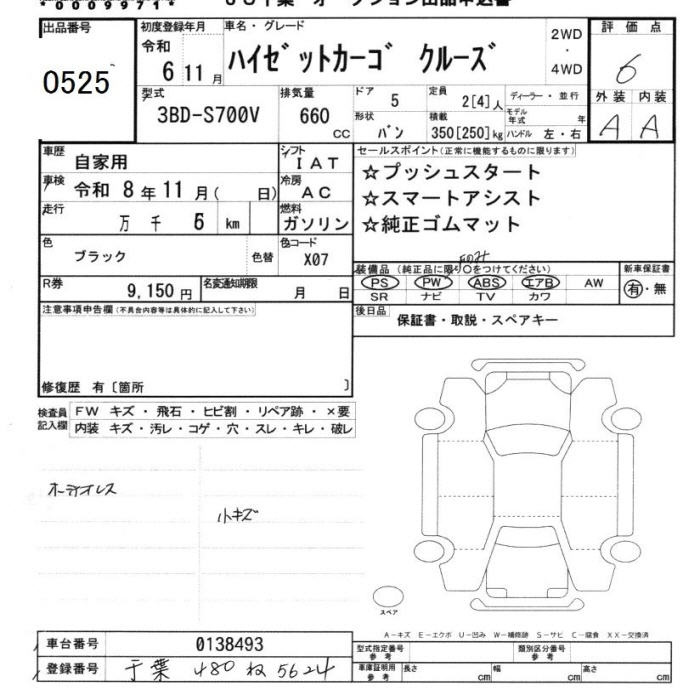 *0009971*
出品番号
0525
初度登録年月
令和
6 11 月
車名・グレード
ハイゼットカーゴ クルーズ
2WD
・
4WD
評価点
6
外装 内装
A A
型式
3BD-S700V
排気量
660
cc
ドア
5
定員
2[4]人
ディーラー・並行
形状
バン
積載
350[250]kg
モデル年式 年
ハンドル 左・右
車歴
自家用
シフト
IAT
車検
令和 8 年 11 月( 日)
冷房
AC
走行
万 千 6 km
燃料
ガソリン
色
ブラック
色替
色コード
X07
R券
9,150 円
名変通知期限
月 日
セールスポイント(正常に機能するものに限ります)
☆プッシュスタート
☆スマートアシスト
☆純正ゴムマット
装備品(純正品に限り○をつけてください)
PS PW ABS エアB AW
SR ナビ TV カワ
新車保証書
有・無
後日品
保証書・取説・スペアキー
注意事項申告欄(不具合内容等は具体的に記入して下さい)
修復歴 有〔箇所 〕
検査員記入欄
FW キズ・飛石・ヒビ割・リペア跡・×要
内装 キズ・汚レ・コゲ・穴・スレ・キレ・破レ
オーディオレス
小キズ
スペア
A-キズ E-エクボ U-凹み W-補修跡 S-サビ C-腐食 XX-交換済
車台番号
0138493
登録番号
千葉 480 ね 5624
型式指定番号
参考
類別区分番号
参考
車庫証明用
参考
長さ cm
幅 cm
高さ cm